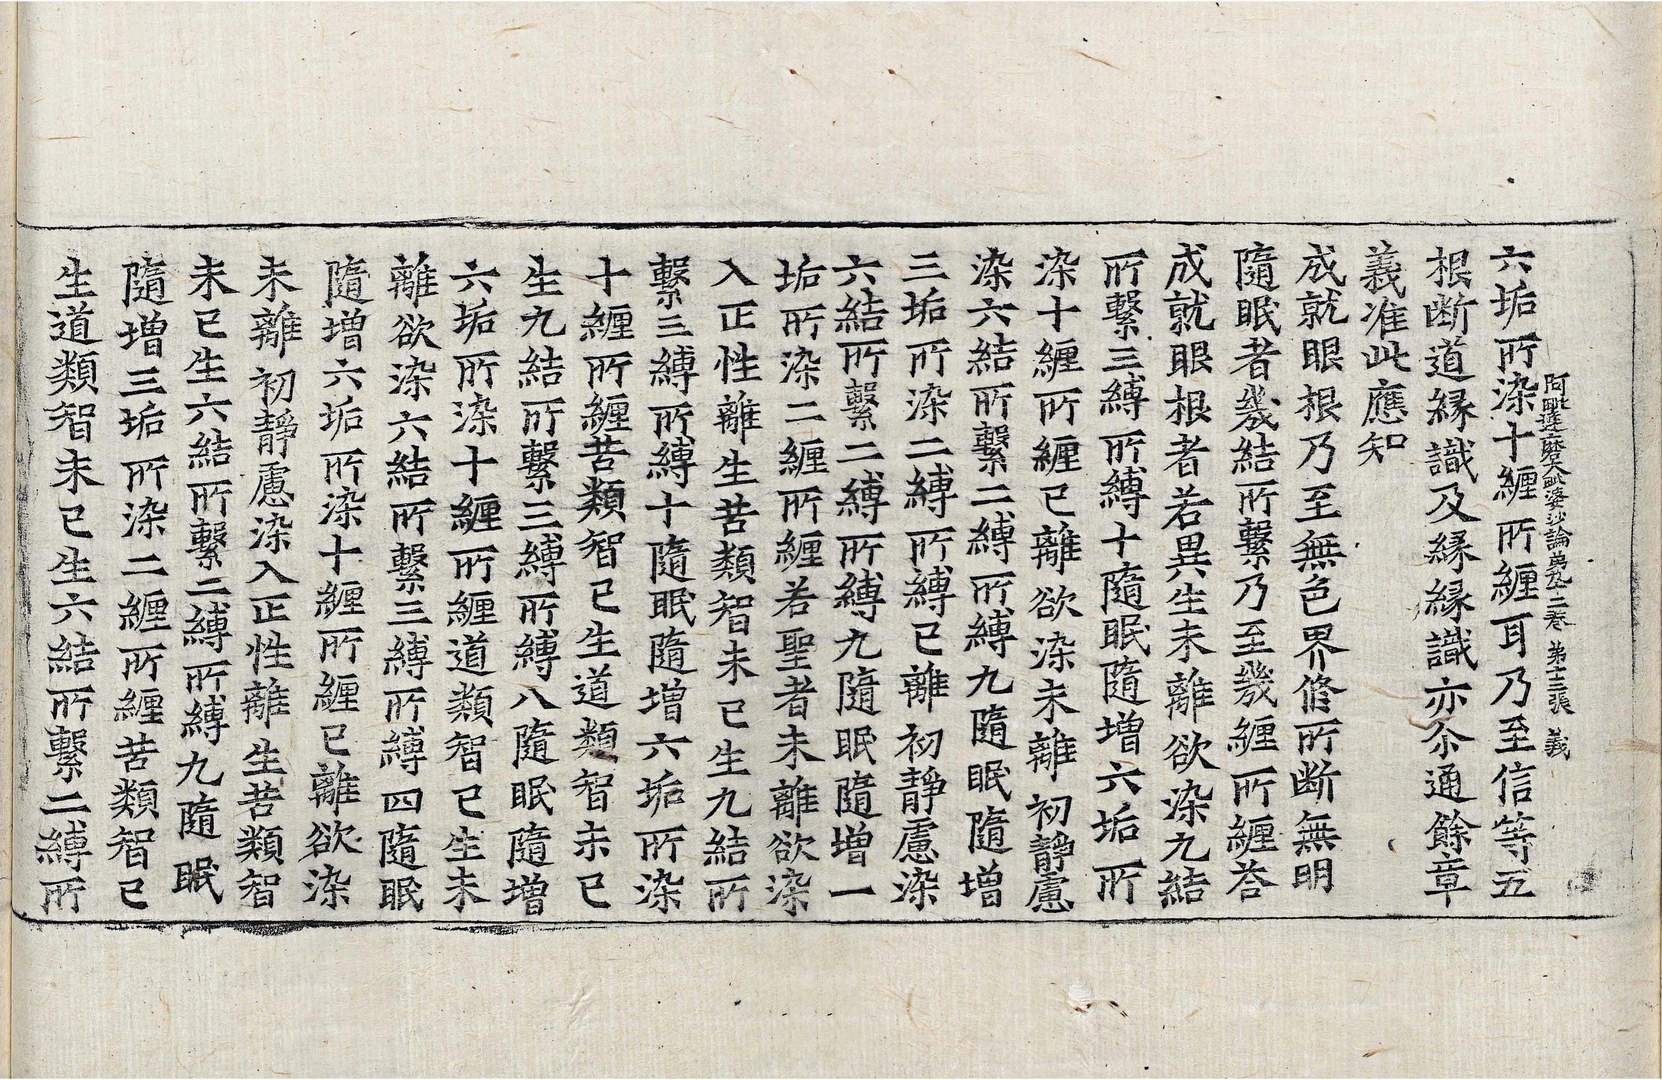 阿毗達磨大毗婆沙論第九十二卷 第十三張 義
六垢所染十纏所纏耳乃至信等五
根断道緣識及緣緣識亦尒通餘章
義准此應知
成就眼根乃至無色界修所断無明
隨眠者幾結所繫乃至幾纏所纏荅
成就眼根者若異生未離欲染九結
所繫三縛所縛十隨眠隨增六垢所
染十纏所纏已離欲染未離初靜慮
染六結所繫二縛所縛九隨眠隨增
三垢所染二縛所縛已離初靜慮染
六結所繫二縛所縛九隨眠隨增一
垢所染二纏所纏若聖者未離欲染
入正性離生苦類智未已生九結所
繫三縛所縛十隨眠隨增六垢所染
十纏所纏苦類智已生道類智未已
生九結所繫三縛所縛八隨眠隨增
六垢所染十纏所纏道類智已生未
離欲染六結所繫三縛所縛四隨眠
隨增六垢所染十纏所纏已離欲染
未離初靜慮染入正性離生苦類智
未已生六結所繫二縛所縛九隨眠
隨增三垢所染二纏所纏苦類智已
生道類智未已生六結所繫二縛所